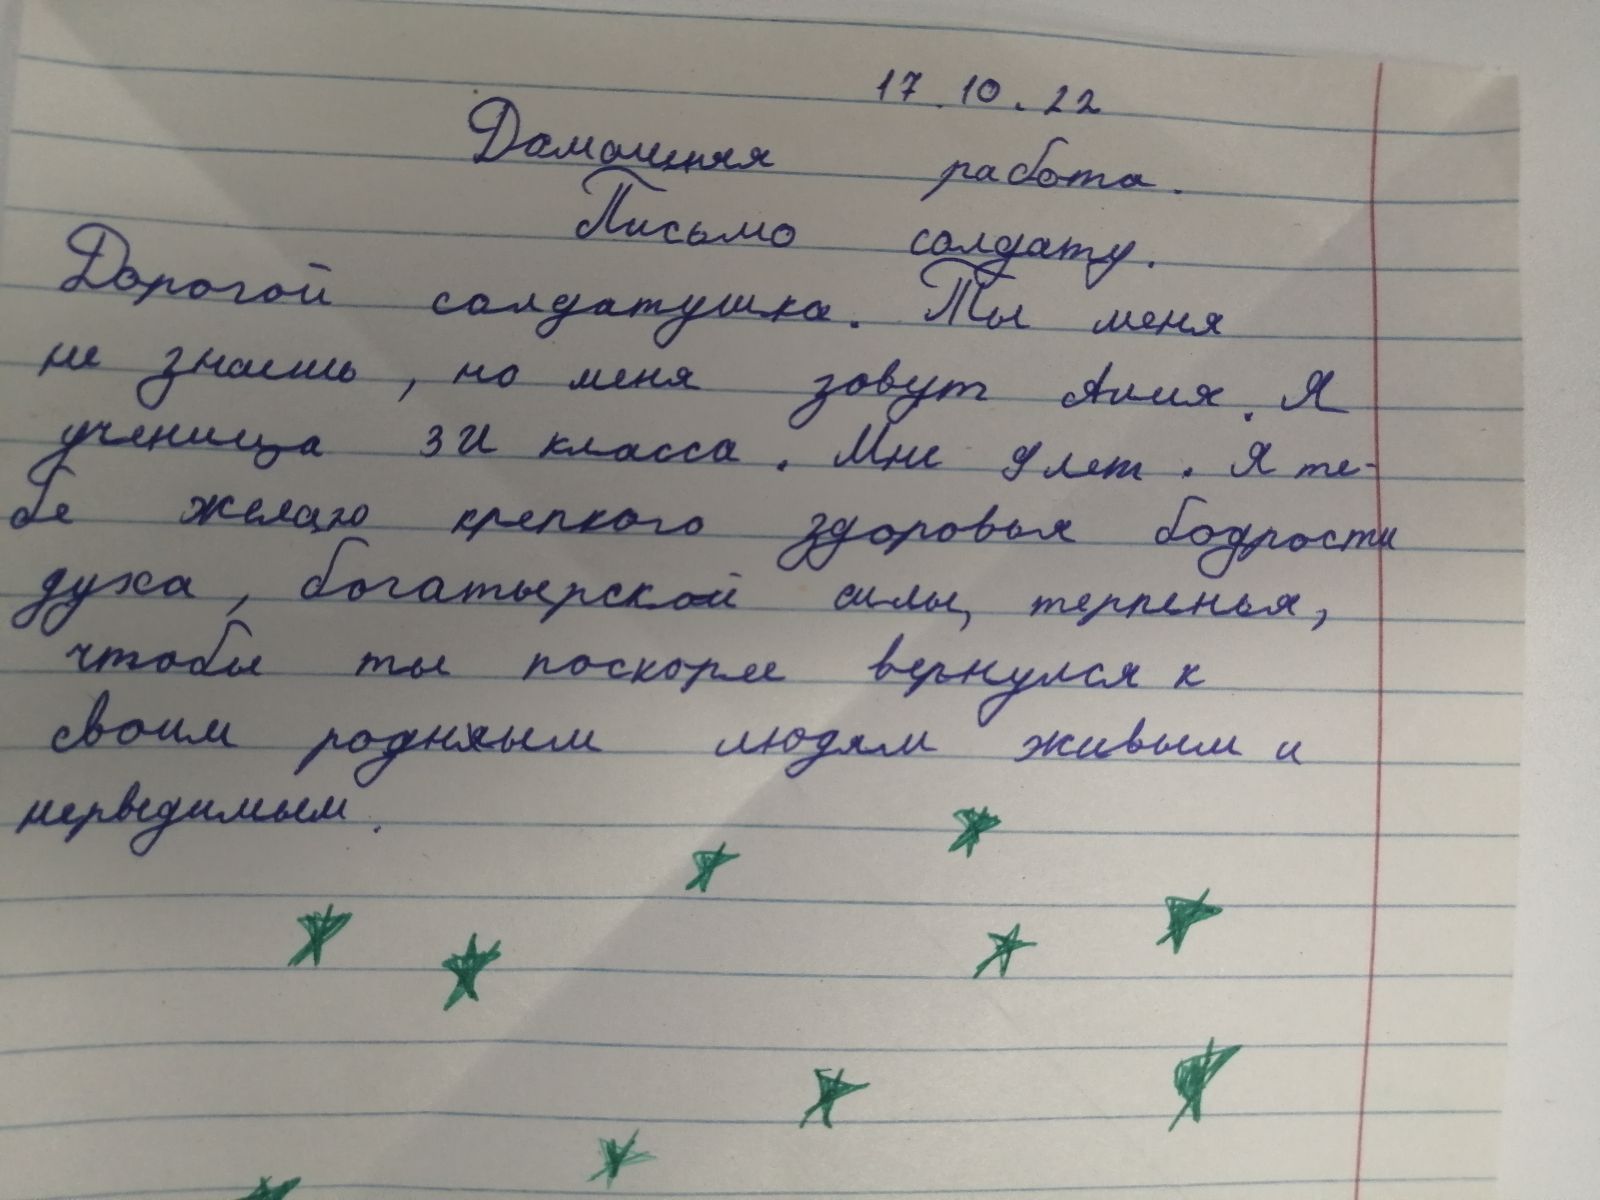 17.10.22
Домашняя работа.
Письмо солдату.
Дорогой солдатушка. Ты меня
не знаешь, но меня зовут Алия. Я
ученица 3И класса. Мне 9 лет. Я те-
бе желаю крепкого здоровья бодрости
духа, богатырской силы, терпенья,
чтобы ты поскорее вернулся к
своим родным людям живым и